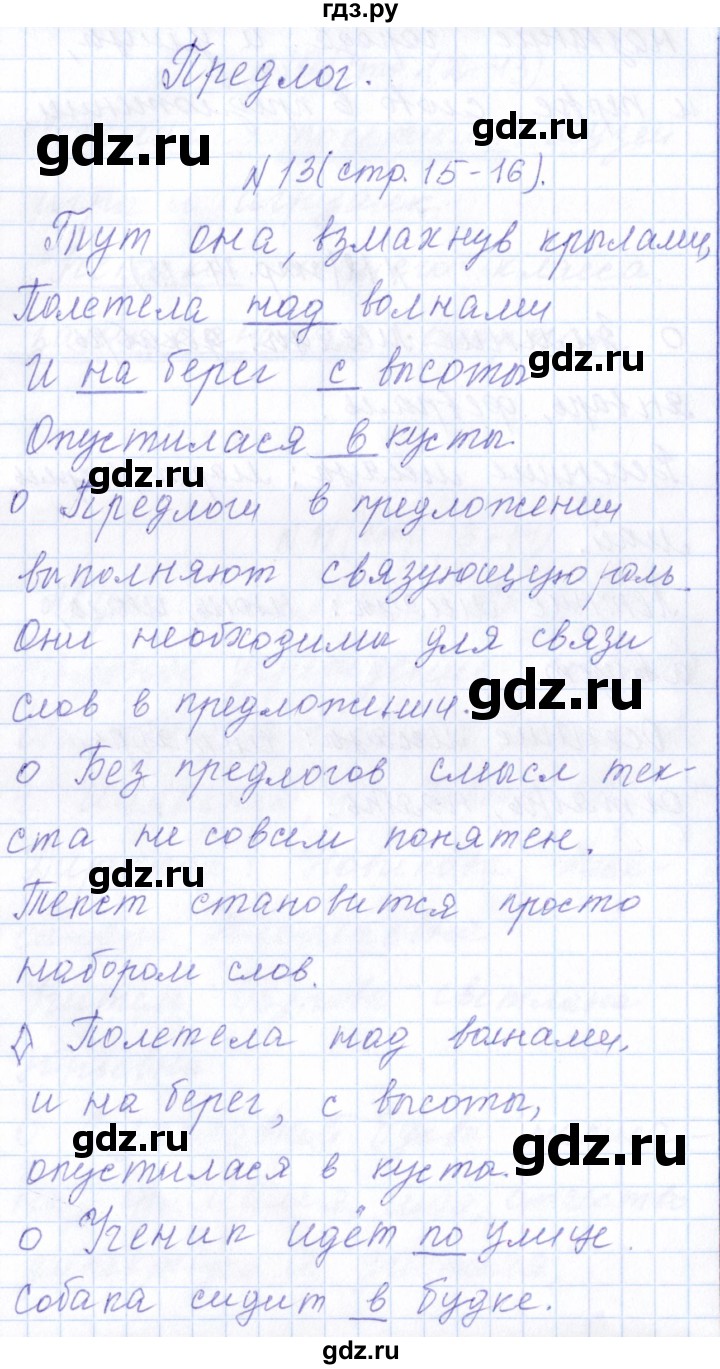 гдз.ру
Предлог.
gdz.ru
gdz.ru
N 13 (стр. 15-16).
Тут она, взмахнув крылами,
Полетела над волнами
И на берег с высоты
gdz.ru
Опустилася в кусты.
gdz.ru
о Предлоги в предложении
выполняют связующую роль.
Они необходимы для связи
слов в предложении.
gdz.ru
о Без предлогов смысл тек-
ста не совсем понятен.
gdz.ru
Текст становится просто
набором слов.
◊ Полетела над волнами,
и на берег, с высоты,
gdz.ru
опустилася в куста.
gdz.ru
о Ученик идёт по улице.
Собака сидит в будке.
gdz.ru